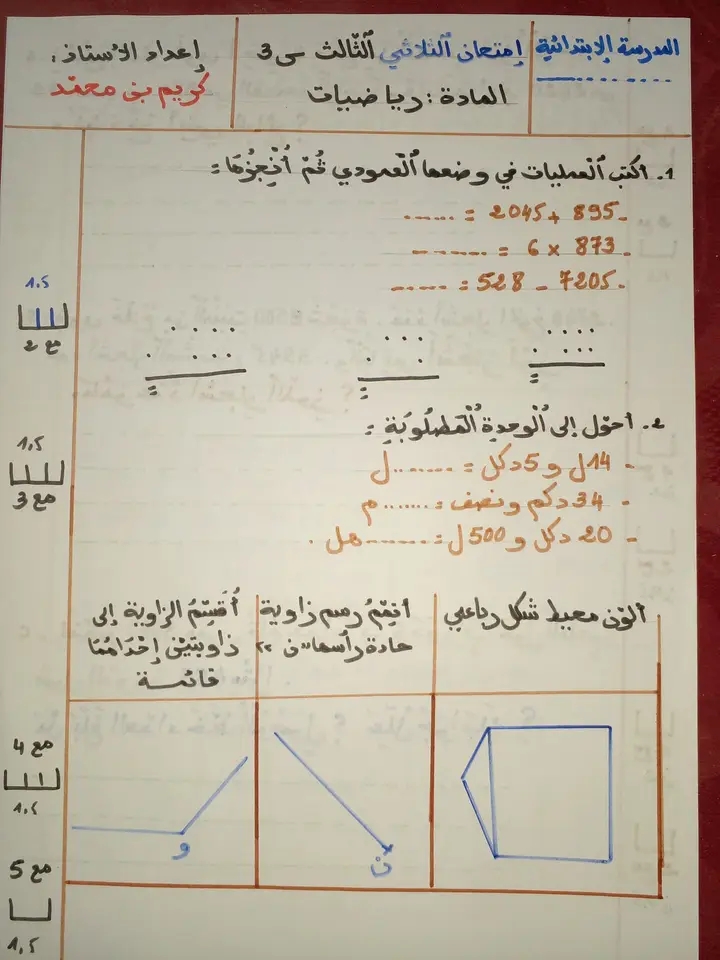 المدرسة الإبتدائية
إمتحان الثلاثي الثالث س 3
المادة : رياضيات
إعداد الأستاذ :
كريم بن محمد
1. أكتب العمليات في وضعها العمودي ثم أنجزها :
- 895 + 2045 = ......
- 873 × 6 = .......
- 7205 - 528 = ......
1.5
مع 2
=
=
=
2. أحول إلى الوحدة المطلوبة :
- 14 ل و 5 دكل = ....... ل
- 34 دكم ونصف = ....... م
- 20 دكل و 500 ل = ....... هل .
1.5
مع 3
ألون محيط شكل رباعي
أتمم رسم زاوية
حادة رأسها "ن"
أقسم الزاوية إلى
زاويتين إحداهما
قائمة
ن
و
مع 4
1.5
مع 5
1.5